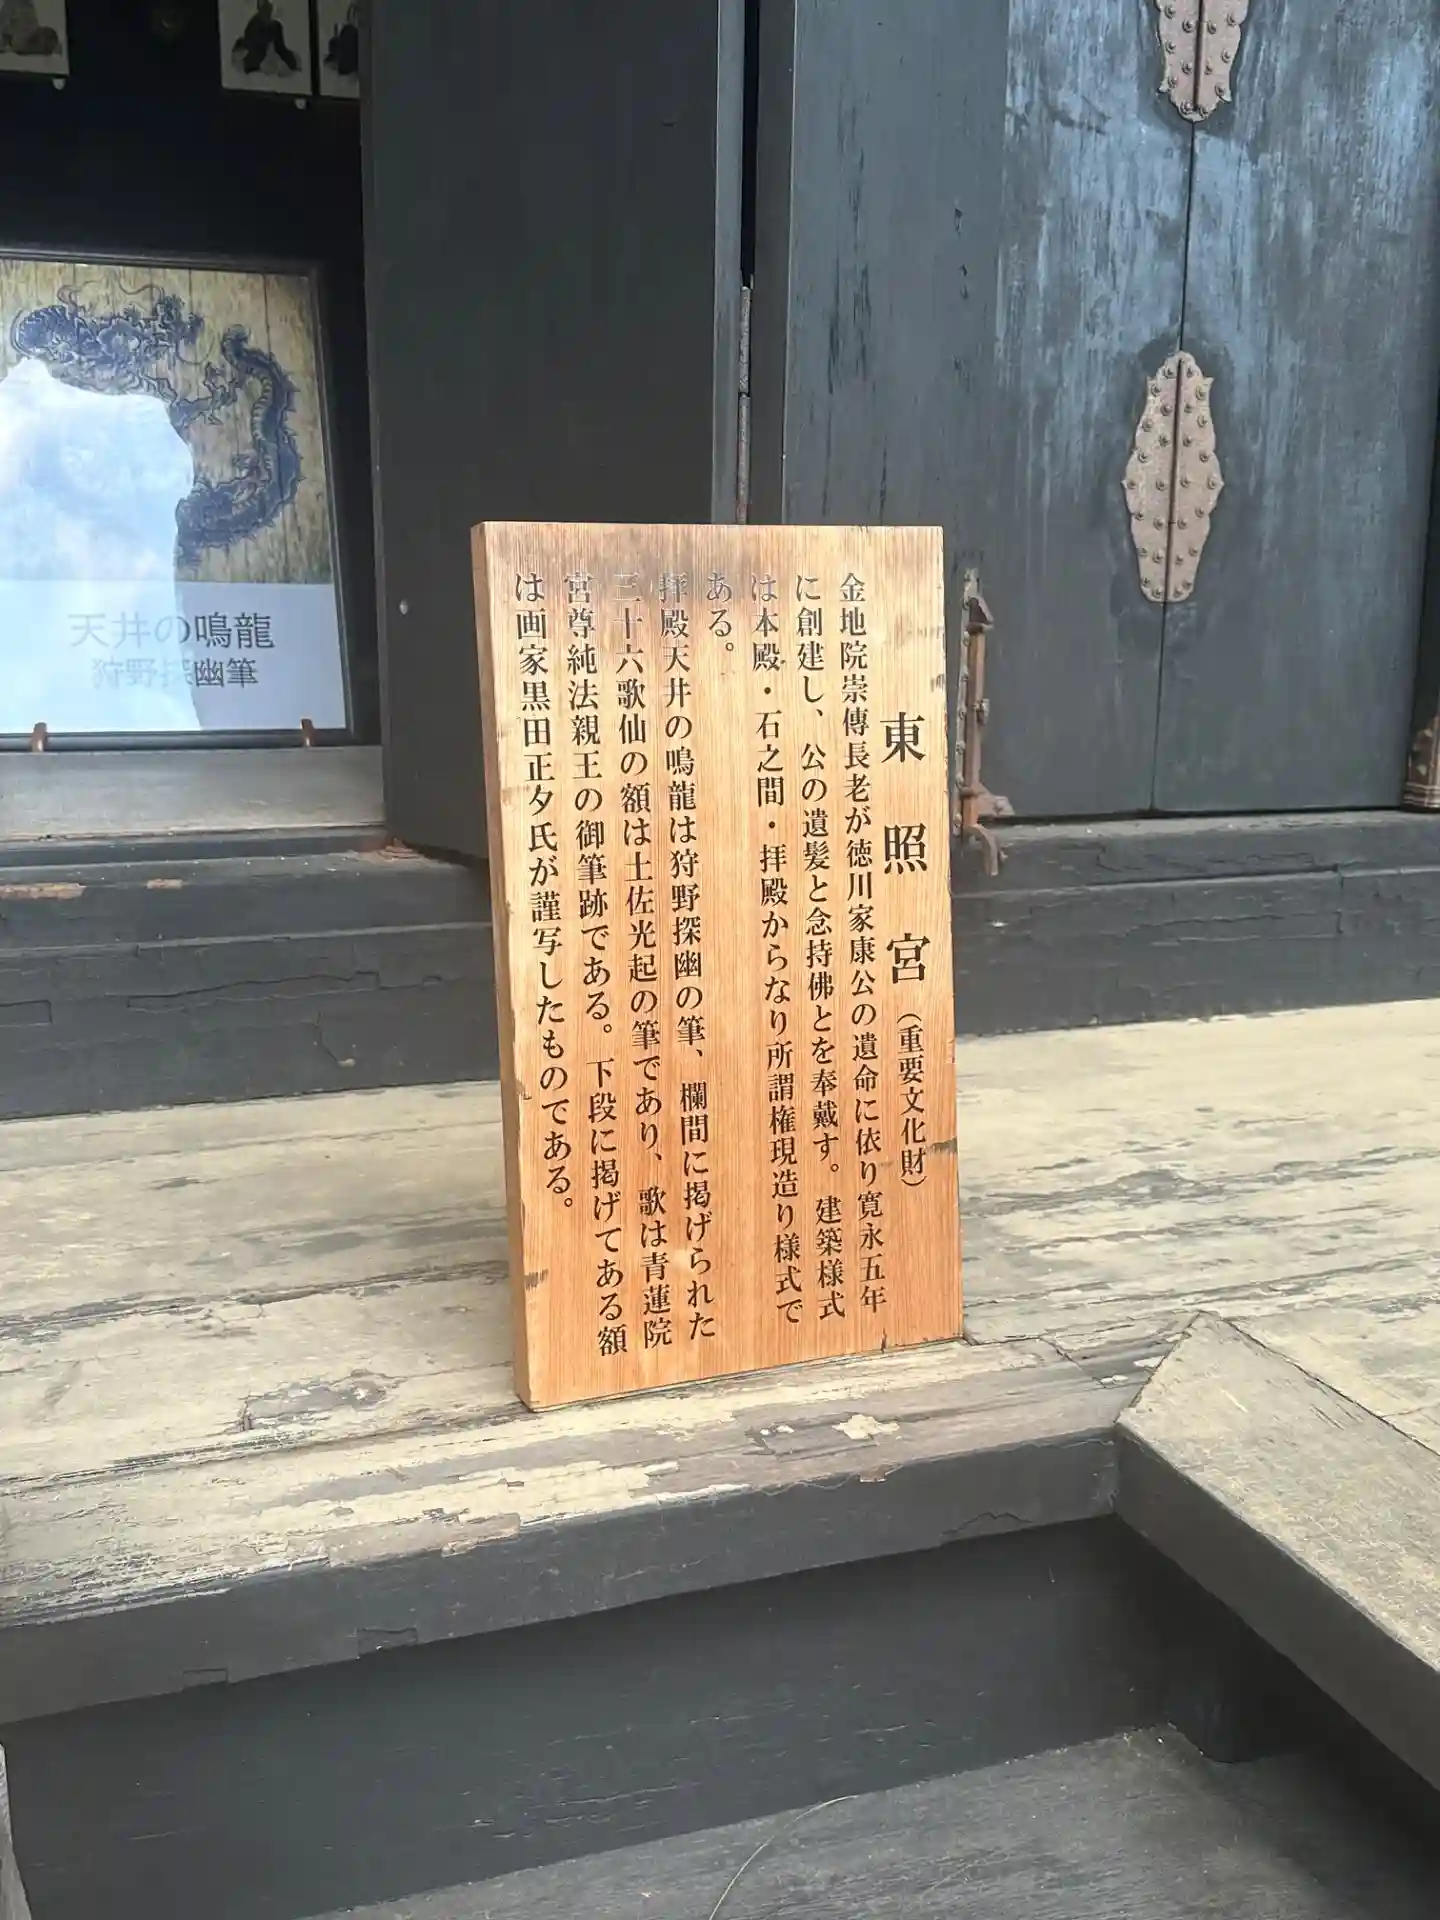 東照宮（重要文化財）
金地院崇傳長老が徳川家康公の遺命に依り寛永五年
に創建し、公の遺髪と念持佛とを奉戴す。建築様式
は本殿・石之間・拝殿からなり所謂権現造り様式で
ある。
拝殿天井の鳴龍は狩野探幽の筆、欄間に掲げられた
三十六歌仙の額は土佐光起の筆であり、歌は青蓮院
宮尊純法親王の御筆跡である。下段に掲げてある額
は画家黒田正夕氏が謹写したものである。
天井の鳴龍
狩野探幽筆